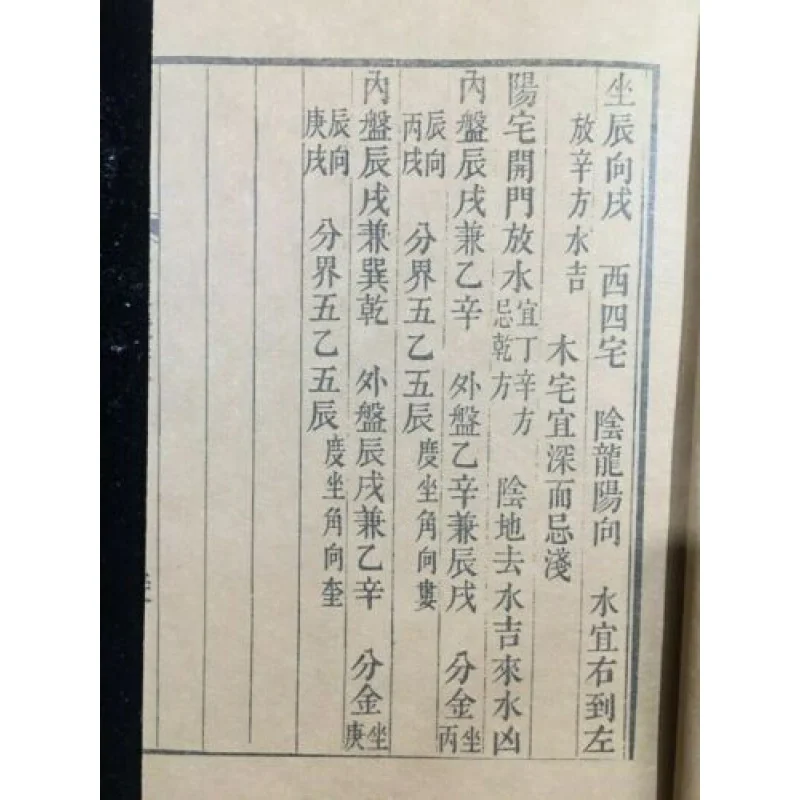 坐辰向戌 西四宅 陰龍陽向 水宜右到左
放辛方水吉 木宅宜深而忌淺
陽宅開門放水 宜丁辛方 忌乾方 陰地去水吉來水凶
內盤辰戌兼乙辛 外盤乙辛兼辰戌 分金 坐丙
辰向丙戌 分界五乙五辰 度坐角向婁
內盤辰戌兼巽乾 外盤辰戌兼乙辛 分金 坐庚
辰向庚戌 分界五乙五辰 度坐角向奎